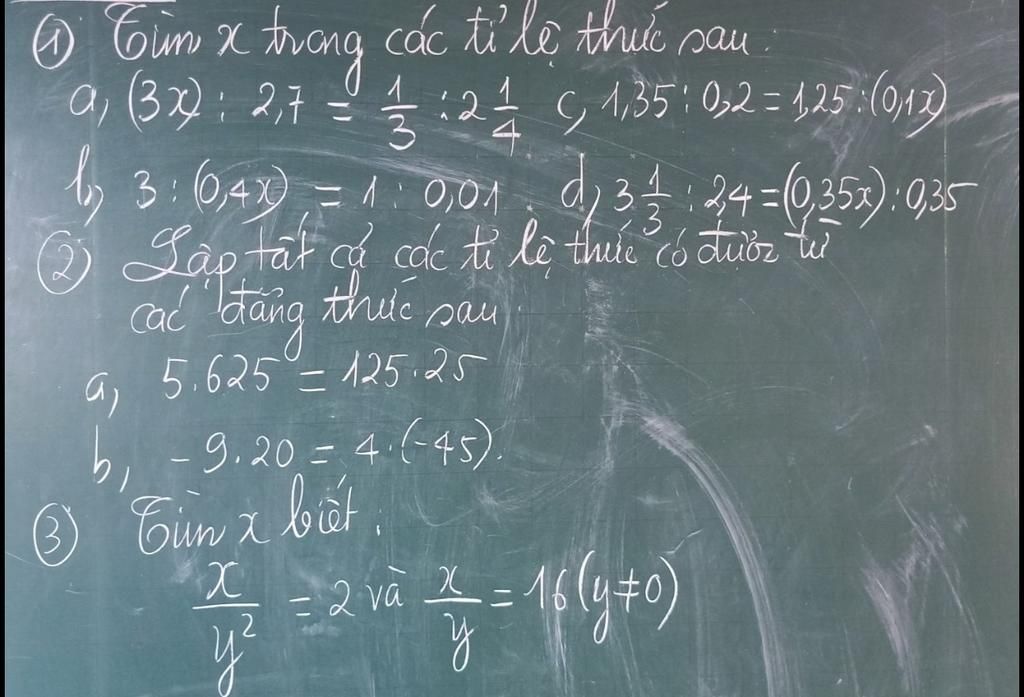 ① Tìm x trong các tỉ lệ thức sau:
a, (3x) : 2,7 = 1/3 : 2 1/4 c, 1,35 : 0,2 = 1,25 : (0,1x)
b, 3 : (0,4x) = 1 : 0,01 d, 3 1/3 : 2,4 = (0,35x) : 0,35
② Lập tất cả các tỉ lệ thức có được từ
các đẳng thức sau:
a, 5.625 = 125.25
b, -9.20 = 4.(-45).
③ Tìm x biết:
x/y² = 2 và x/y = 16 (y≠0)